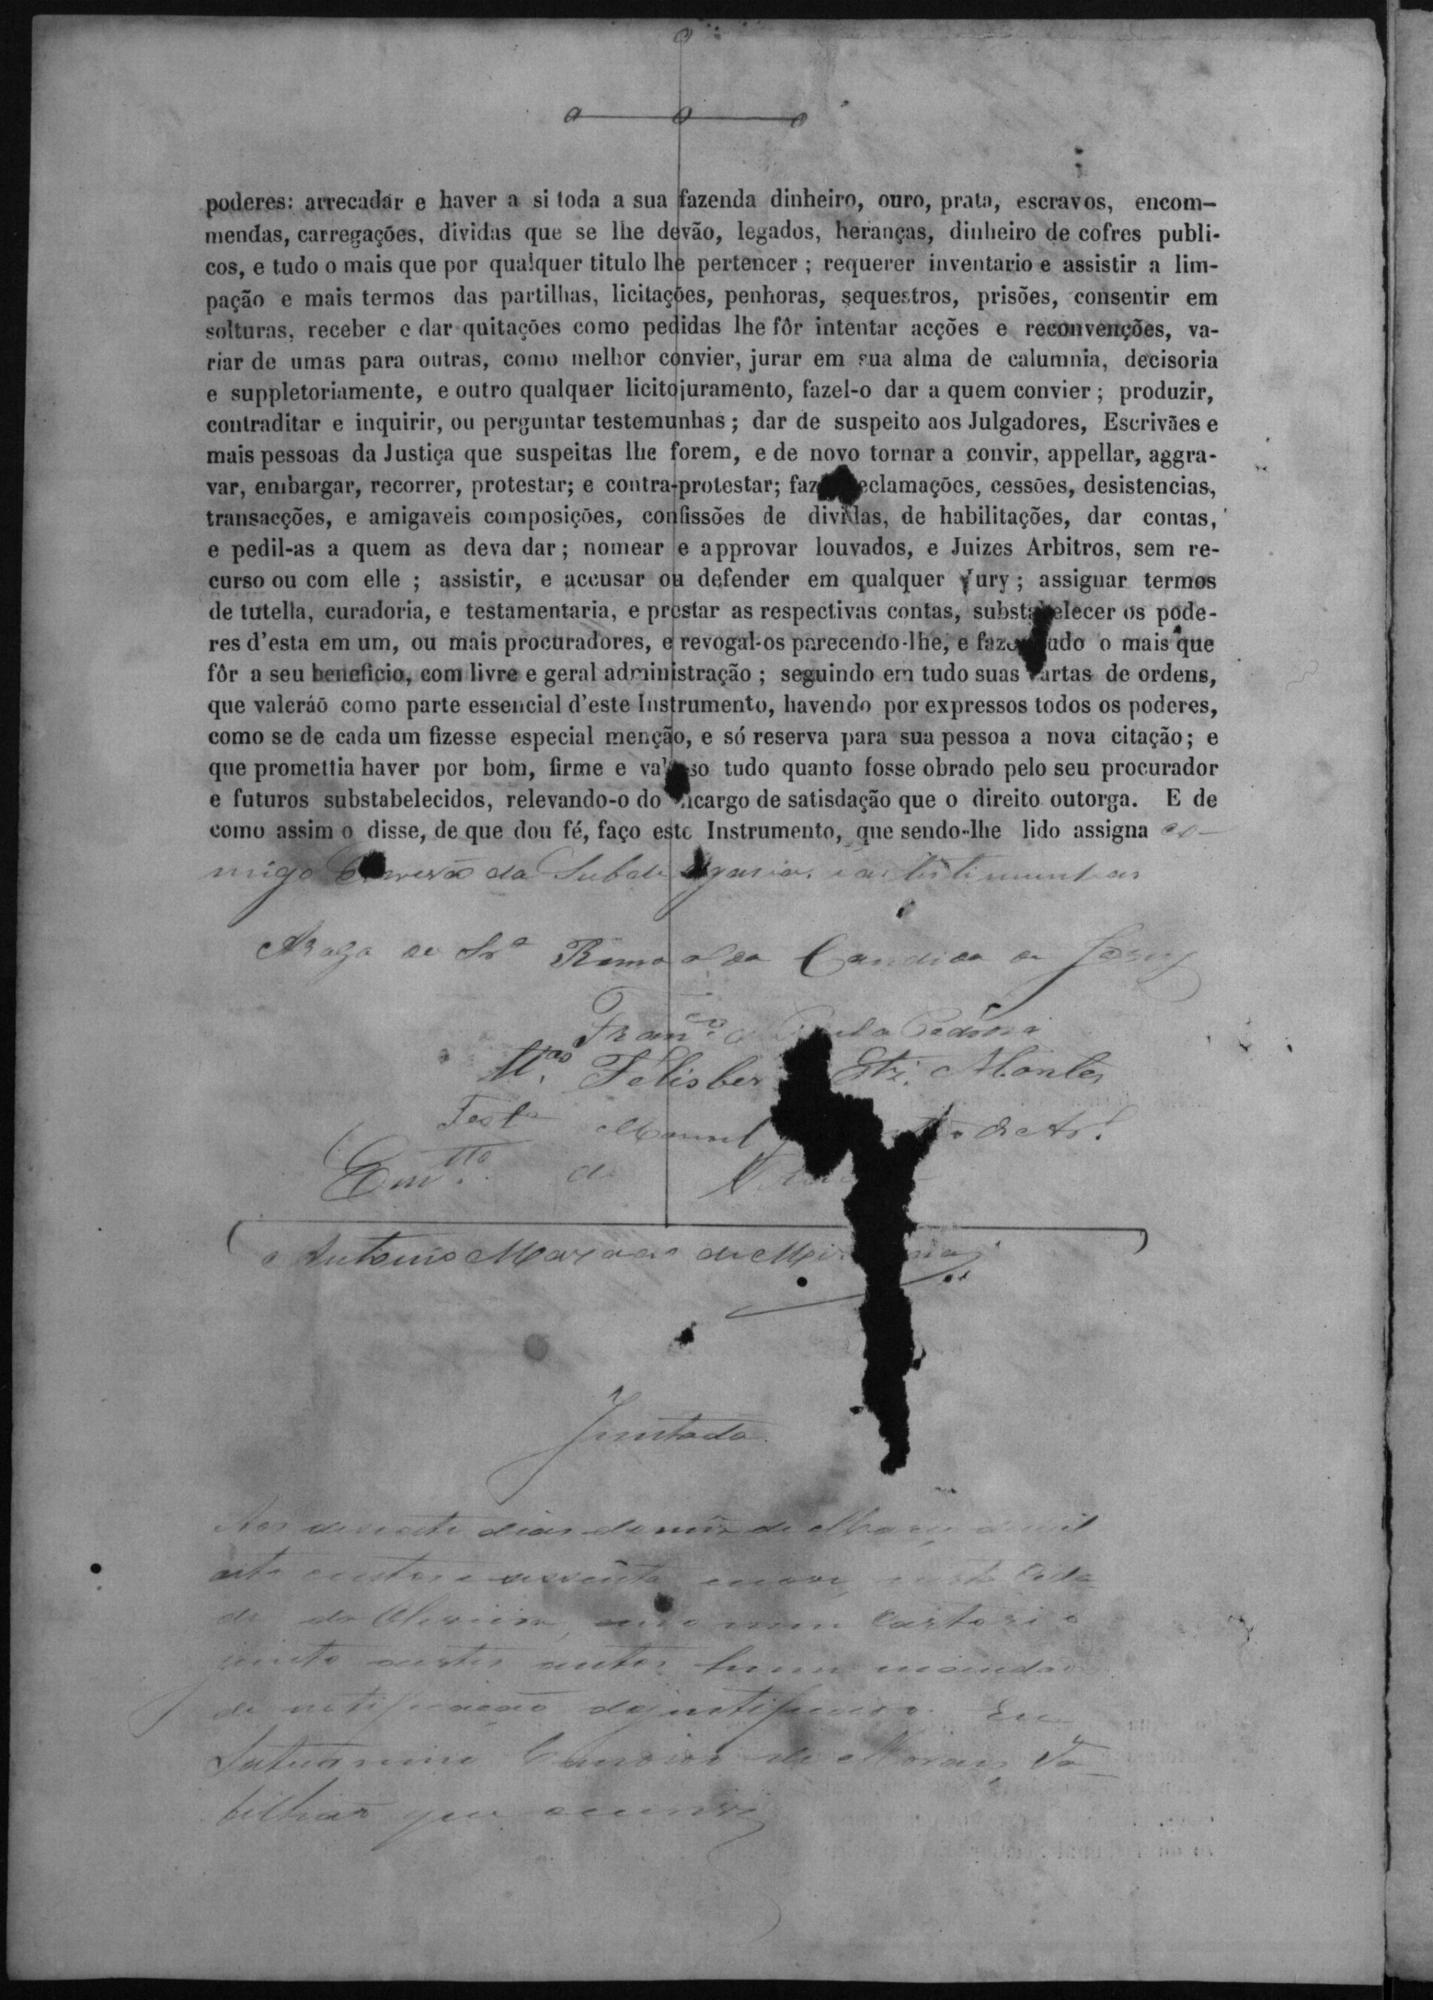 poderes: arrecadar e haver a si toda a sua fazenda dinheiro, ouro, prata, escravos, encom-
mendas, carregações, dividas que se lhe devão, legados, heranças, dinheiro de cofres publi-
cos, e tudo o mais que por qualquer titulo lhe pertencer ; requerer inventario e assistir a lim-
pação e mais termos das partilhas, licitações, penhoras, sequestros, prisões, consentir em
solturas, receber e dar quitações como pedidas lhe fôr intentar acções e reconvenções, va-
riar de umas para outras, como melhor convier, jurar em sua alma de calumnia, decisoria
e suppletoriamente, e outro qualquer licito juramento, fazel-o dar a quem convier ; produzir,
contraditar e inquirir, ou perguntar testemunhas ; dar de suspeito aos Julgadores, Escrivães e
mais pessoas da Justiça que suspeitas lhe forem, e de novo tornar a convir, appellar, aggra-
var, embargar, recorrer, protestar; e contra-protestar; faz eclamações, cessões, desistencias,
transacções, e amigaveis composições, confissões de dividas, de habilitações, dar contas,
e pedil-as a quem as deva dar ; nomear e approvar louvados, e Juizes Arbitros, sem re-
curso ou com elle ; assistir, e accusar ou defender em qualquer Jury ; assignar termos
de tutella, curadoria, e testamentaria, e prestar as respectivas contas, substabelecer os pode-
res d'esta em um, ou mais procuradores, e revogal-os parecendo-lhe, e faze udo o mais que
fôr a seu beneficio, com livre e geral administração ; seguindo em tudo suas cartas de ordens,
que valeráõ como parte essencial d'este Instrumento, havendo por expressos todos os poderes,
como se de cada um fizesse especial menção, e só reserva para sua pessoa a nova citação; e
que promettia haver por bom, firme e va so tudo quanto fosse obrado pelo seu procurador
e futuros substabelecidos, relevando-o do ncargo de satisdação que o direito outorga. E de
como assim o disse, de que dou fé, faço este Instrumento, que sendo-lhe lido assigna co-
migo Escrivão da Subdelegacia, e as testimunhas
Arogo de Srª Romoalda Candida de Jesus
Franᶜᵒ Paula
Felisber Montes
Testª Manuel
Em ttº de
Antonio Mir
Juntada
Aos dias do mes de Março de mil
oito centos e sessenta e nove, nesta Cida-
de da Oliveira, em o meu Cartorio
junto a estes autos hum mandado
de notificação Eu
Saturnino Candido de Moraes Ta-
bellião que escrevi